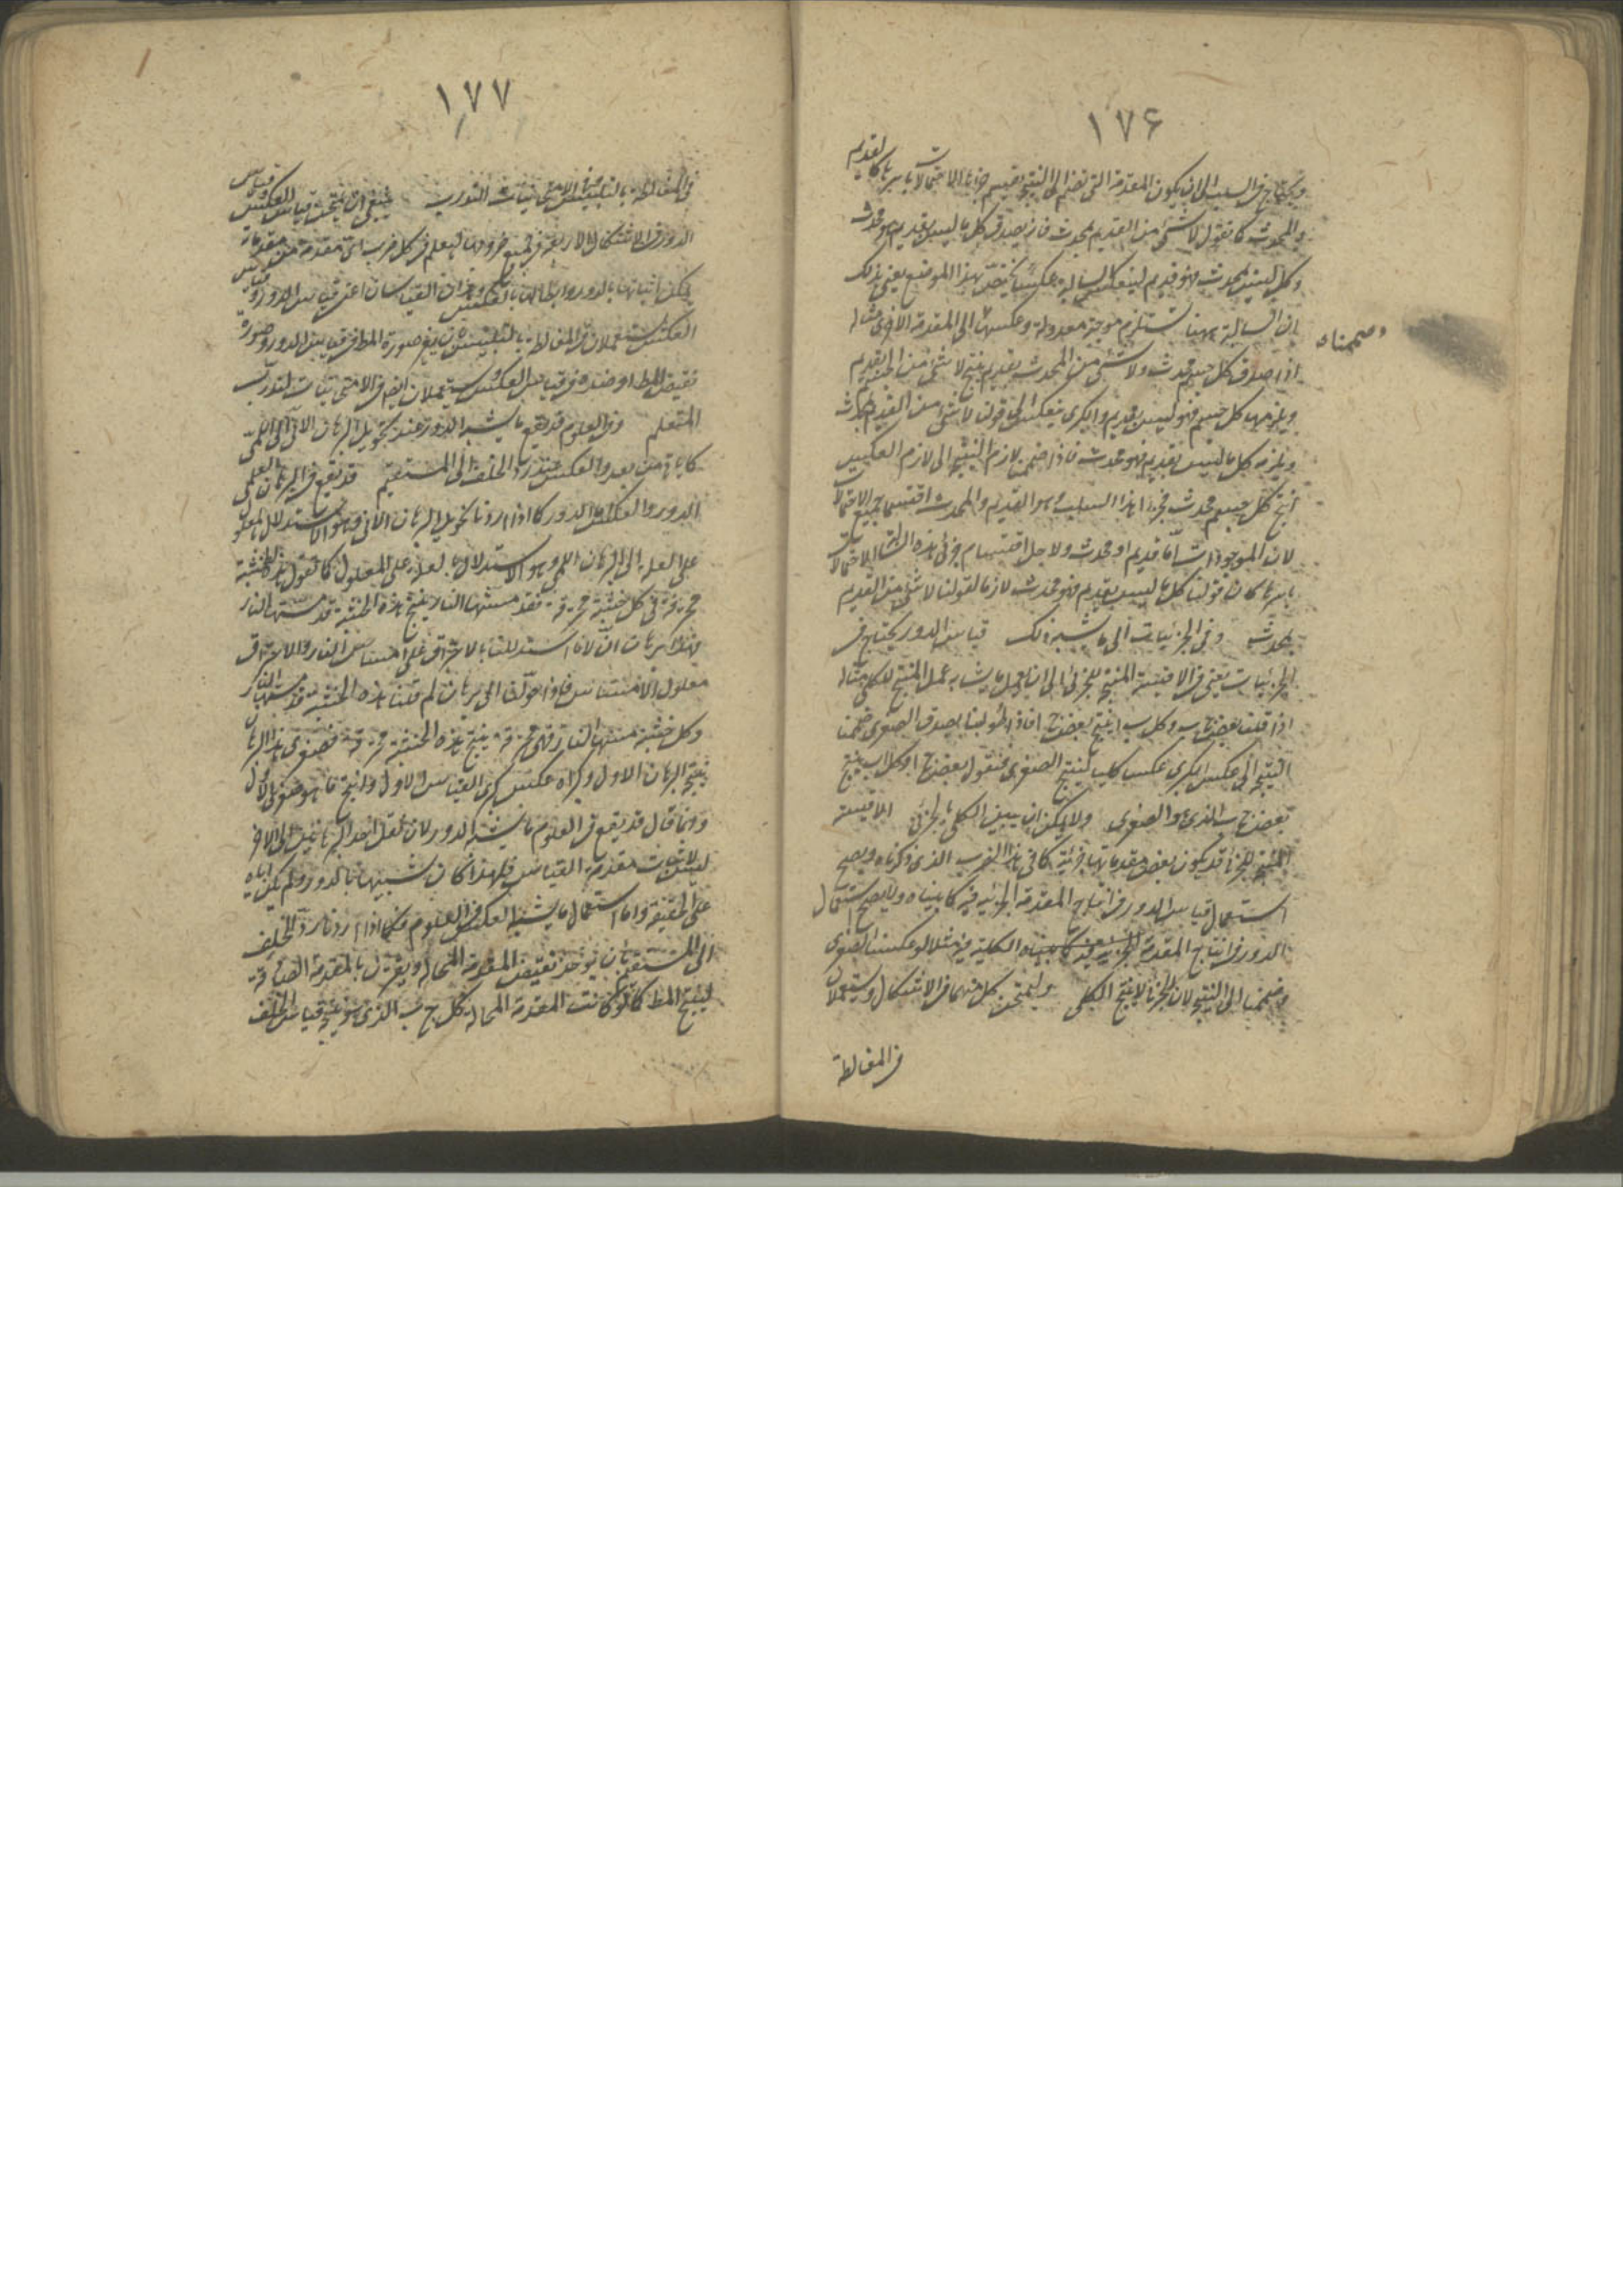 ١٧۶
ويحتاج في السلب الى ان يكون المقدمة التى نضم الى النتيجة خاصة الاحتمالات باسرها كالقديم
والمحدث كما نقول لا شئ من القديم بمحدث فانه يصدق كل ما ليس بقديم هو محدث
وكل ما ليس بمحدث فهو قديم لينعكس السالبة عكسا يختص بهذا الموضع يعنى بذلك
ان السالبة ههنا تستلزم موجبة معدولة وعكسها الى المقدمة الاخرى مثاله
وضممناه
اذا صدق كل جسم محدث ولا شئ من المحدث بقديم ينتج لا شئ من الجسم بقديم
ويلزمها كل جسم فهو ليس بقديم والكبرى ينعكس الى قولنا لا شئ من القديم بمحدث
ويلزمه كل ما ليس بقديم فهو محدث فاذا ضممنا لازم النتيجة الى لازم العكس
انتج كل جسم محدث فجزءا هذا السلب وهو القديم والمحدث اقتسما جميع الاحتمالات
لان الموجودات اما قديم او محدث ولاجل اقتسام جزئى هذه السالبة الاحتمالات
باسرها كان قولنا كل ما ليس بقديم فهو محدث لازما لقولنا لا شئ من القديم
بمحدث وفى الجزئيات الى ما يشبه ذلك قياس الدور يحتاج فى
الجزئيات يعنى فى الاقيسة المنتجة للجزئى الى ان يعمل ما يشابه عمل المنتج للكلى مثاله
اذا قلنا بعض ج ب وكل ب ا ينتج بعض ج ا فاذا طولبنا بصدق الصغرى ضممنا
النتيجة الى عكس الكبرى عكسا كليا لينتج الصغرى فنقول بعض ج ا وكل ا ب ينتج
بعض ج ب الذى هو الصغرى ولا يمكن ان يبين الكلى بالجزئى الاقيسة
المنتجة للجزئى قد يكون بعض مقدماتها جزئية كما فى هذا الضرب الذى ذكرناه ويصح
استعمال قياس الدور فى انتاج المقدمة الجزئية فيه كما بيناه ولا يصح استعمال
الدور فى انتاج المقدمة الكلية فيه مثلا لو عكسنا الصغرى
وضممنا الى النتيجة لان الجزئى لا ينتج الكلى وليمتحن كل منهما فى الاشكال ويستعملان
فى المغالطة
١٧٧
فى المغالطة بالتلبيس وفى الامتحانيات للتدرب ينبغى ان يمتحن قياس العكس وقياس
الدور فى الاشكال الاربعة وفى جميع ضروبها ليعلم فى كل ضرب اى مقدمة من مقدماته
يمكن اثباتها بالدور وابطالها بالعكس وهذان القياسان اعنى قياس الدور وقياس
العكس يستعملان فى المغالطة بالتلبيس بان يغير صورة المط فى قياس الدور وصورة
نقيض المط او ضده فى قياس العكس ويستعملان ايضا فى الامتحانيات لتدرب
المتعلم وفى العلوم قد يقع ما يشبه الدور عند تحويل البرهان الانى الى اللمى
كما ياتى من بعد والعكس عند رد الخلف الى المستقيم قد يقع فى البرهان العلمى
الدور والعكس اما الدور كما اذا اردنا تحويل البرهان الانى وهو الاستدلال بالمعلول
على العلة الى البرهان اللمى وهو الاستدلال بالعلة على المعلول كما نقول هذه الخشبة
محترقة وكل خشبة محترقة فقد مستها النار ينتج هذه الخشبة قد مستها النار
فهذا برهان ان لانا استدللنا بالاحتراق على امتساس النار والاحتراق
معلول الامتساس فاذا حولنا الى برهان لم قلنا هذه الخشبة قد مستها النار
وكل خشبة مستها النار فهى محترقة ينتج هذه الخشبة محترقة فصغرى هذا البرهان
نتيجة البرهان الاول وكبراه عكس كبرى القياس الاول وانتج ما هو صغرى الاول
وانما قال قد يقع فى العلوم ما يشبه الدور لان نقل احد البرهانين الى الاخر
ليس لاثبات مقدمة القياس فلهذا كان شبيها بالدور ولم يكن اياه
على الحقيقة واما استعمال ما يشبه العكس فى العلوم فكما اذا اردنا رد الخلف
الى المستقيم بان يوخذ نقيض المقدمة المحالة ويقرن بالمقدمة الصادقة
لينتج المط كما لو كانت المقدمة المحالة كل ج ب الذى هو نتيجة قياس الخلف